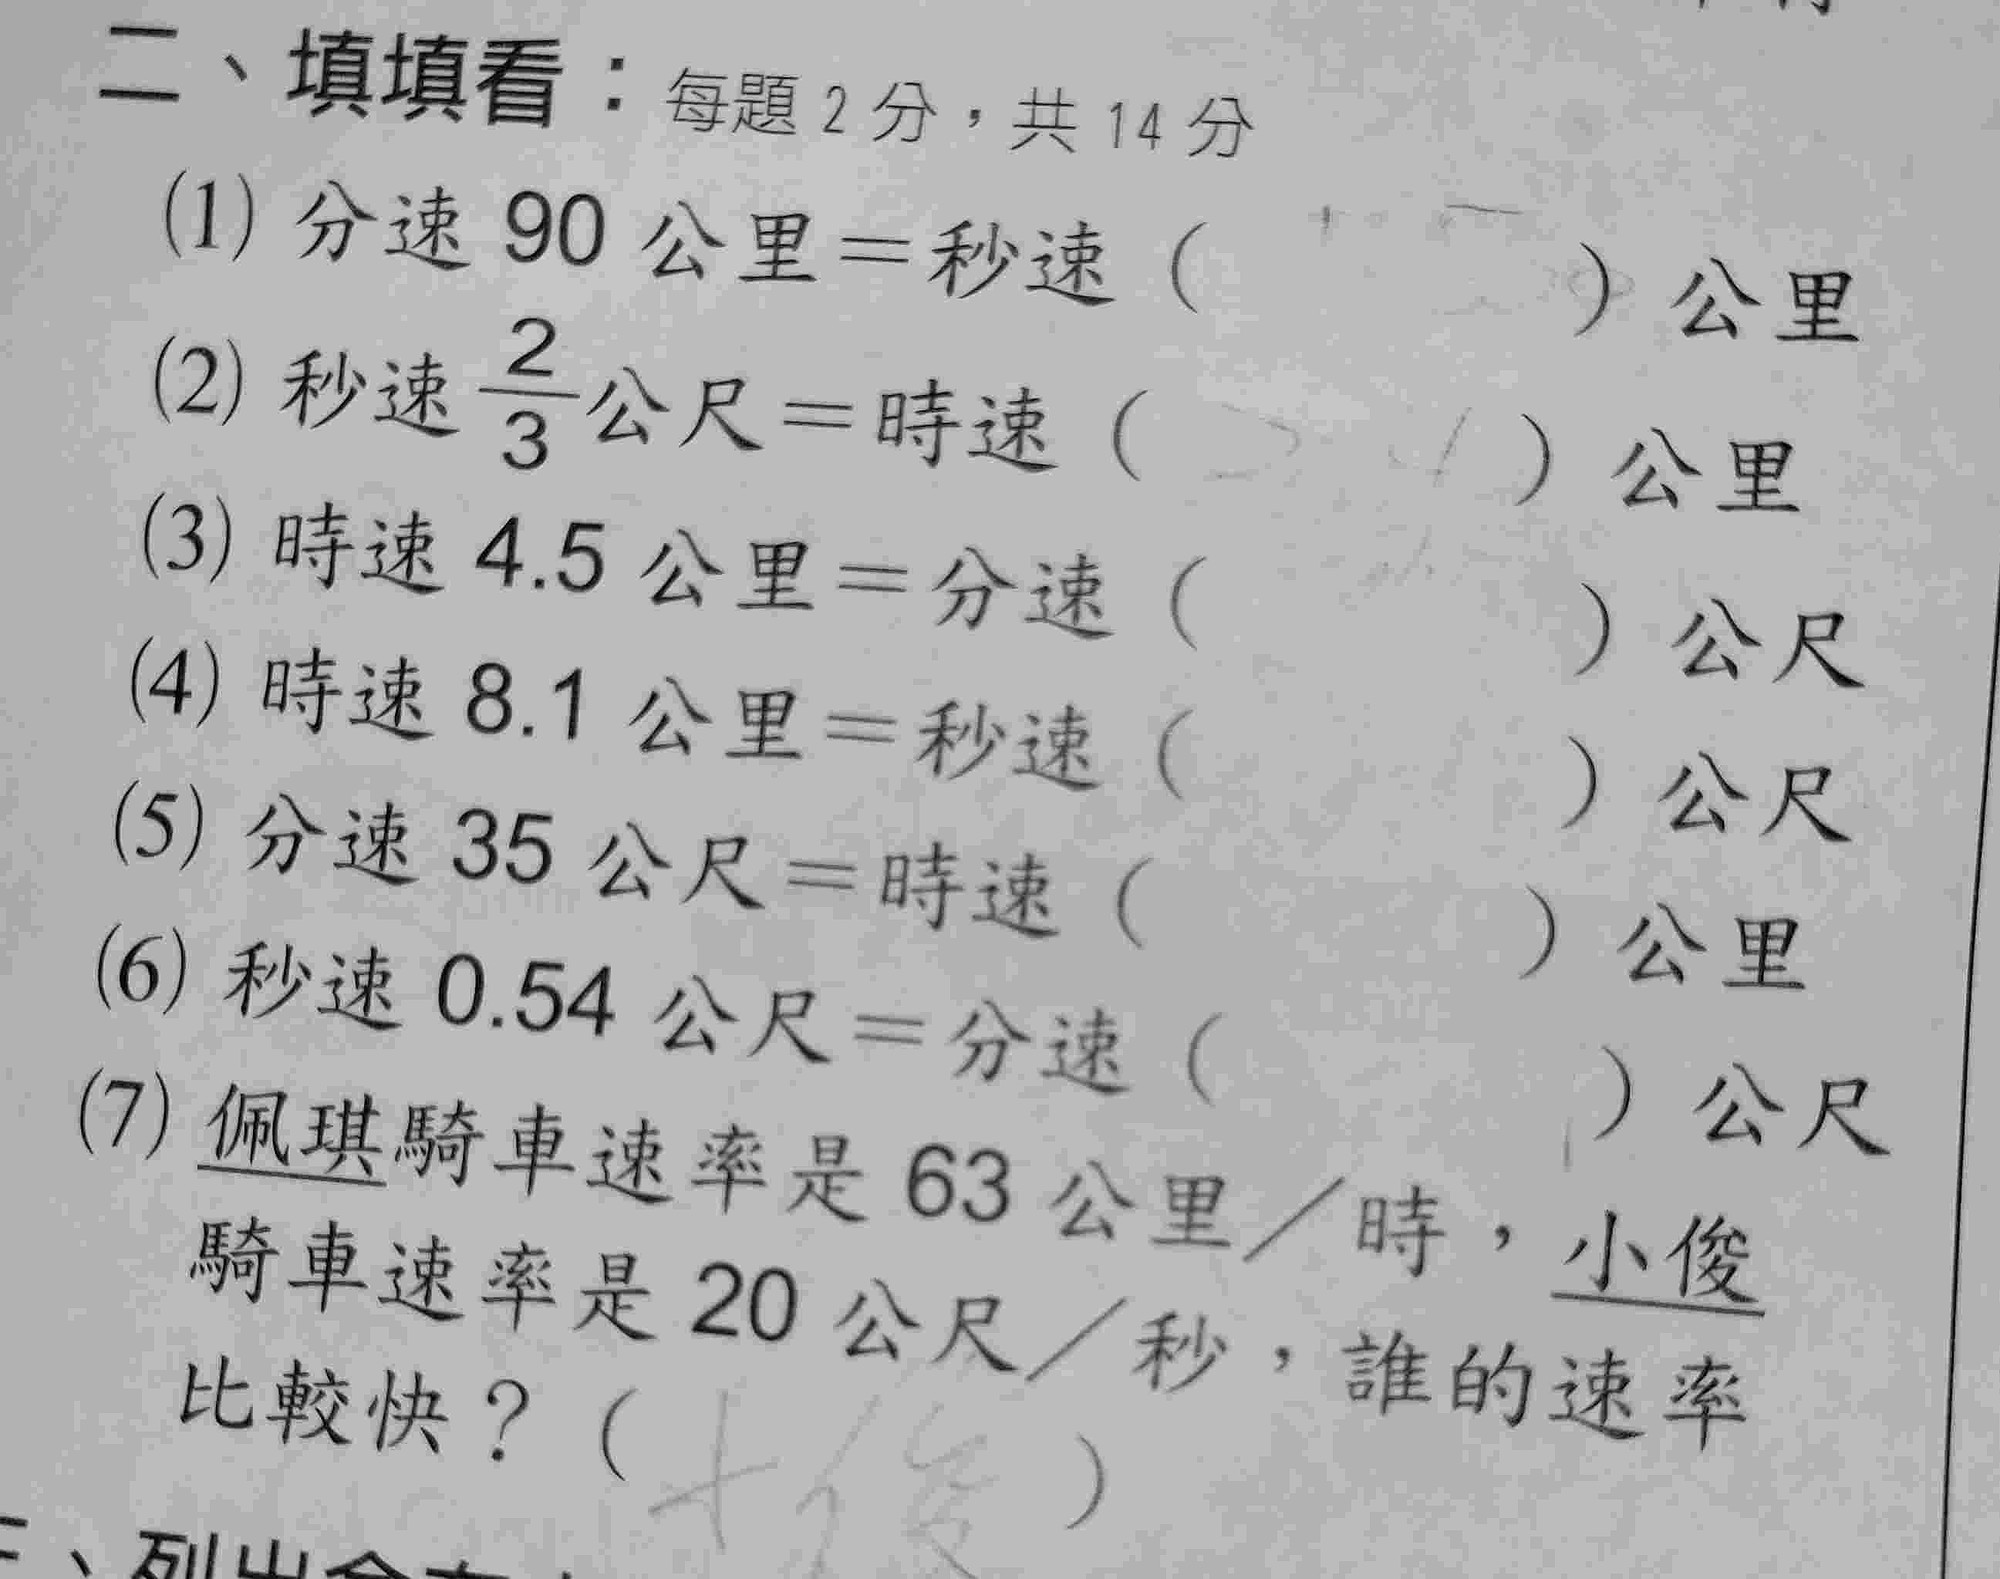 二、填填看：每題 2 分，共 14 分
(1) 分速 90 公里＝秒速（　　　　）公里
(2) 秒速 2/3 公尺＝時速（　　　　）公里
(3) 時速 4.5 公里＝分速（　　　　）公尺
(4) 時速 8.1 公里＝秒速（　　　　）公尺
(5) 分速 35 公尺＝時速（　　　　）公里
(6) 秒速 0.54 公尺＝分速（　　　　）公尺
(7) 佩琪騎車速率是 63 公里／時，小俊
騎車速率是 20 公尺／秒，誰的速率
比較快？（　　　　）